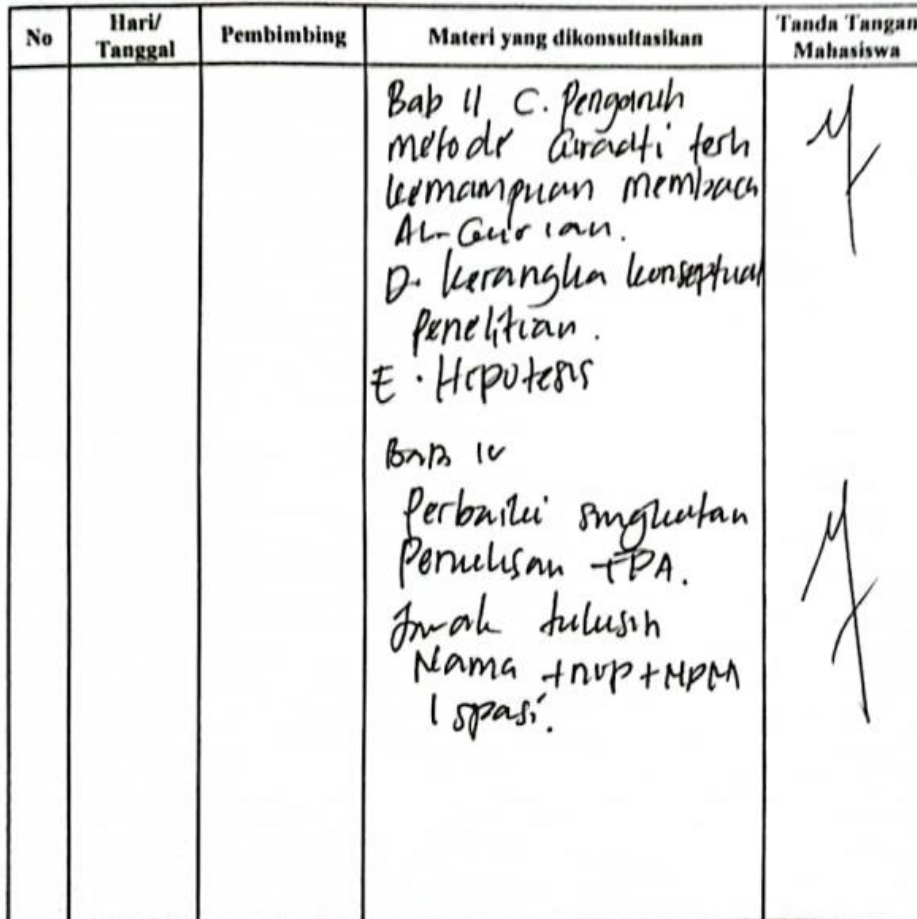 No
Hari/
Tanggal
Pembimbing
Materi yang dikonsultasikan
Tanda Tangan
Mahasiswa
Bab II C. Pengaruh
metode Qiraati terh
kemampuan membaca
AL-Qur'an.
D. Kerangka konseptual
Penelitian.
E. Hipotesis
BAB IV
Perbaiki singkatan
Penulisan TPA.
tulisin
Nama + NIP + NPM
1 spasi.